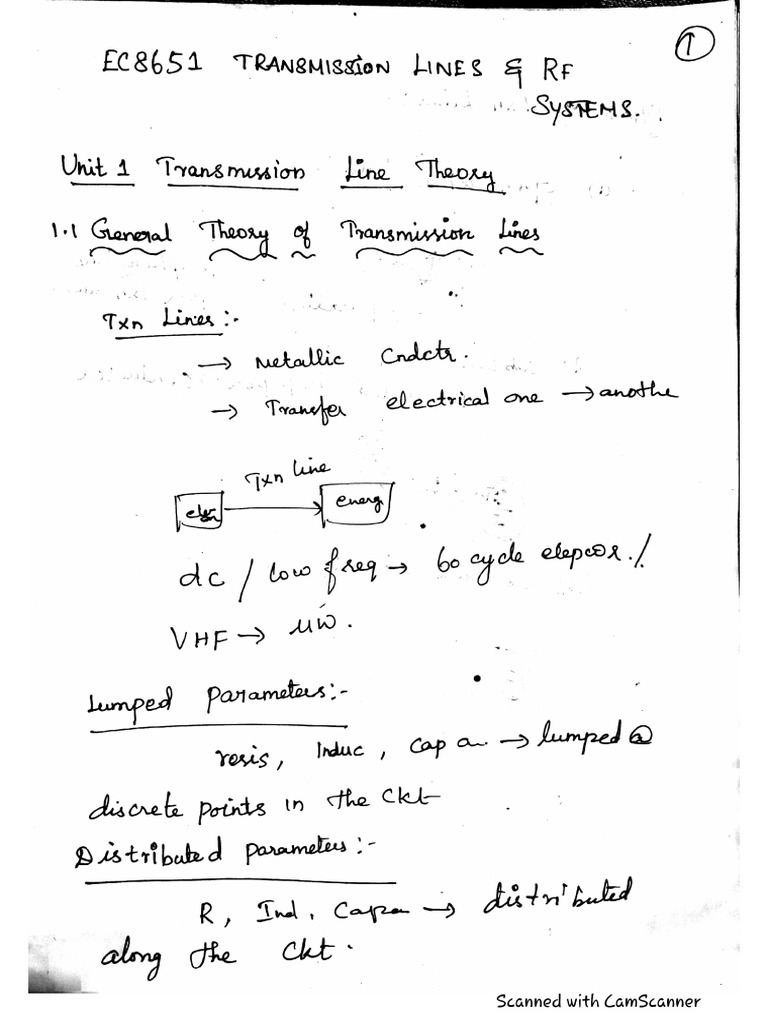 1
EC8651 TRANSMISSION LINES & RF
SYSTEMS.
Unit 1 Transmission Line Theory
1.1 General Theory of Transmission Lines
Txn Lines:-
→ Metallic Cndctr.
→ Transfer electrical one → anothe
Txn line
energ
dc / low freq → 60 cycle
VHF → μw.
Lumped Parameters:-
resis, Induc, cap → lumped @
discrete points in the Ckt
Distributed parameters:-
R, Ind, Capa → distributed
along the Ckt.
Scanned with CamScanner